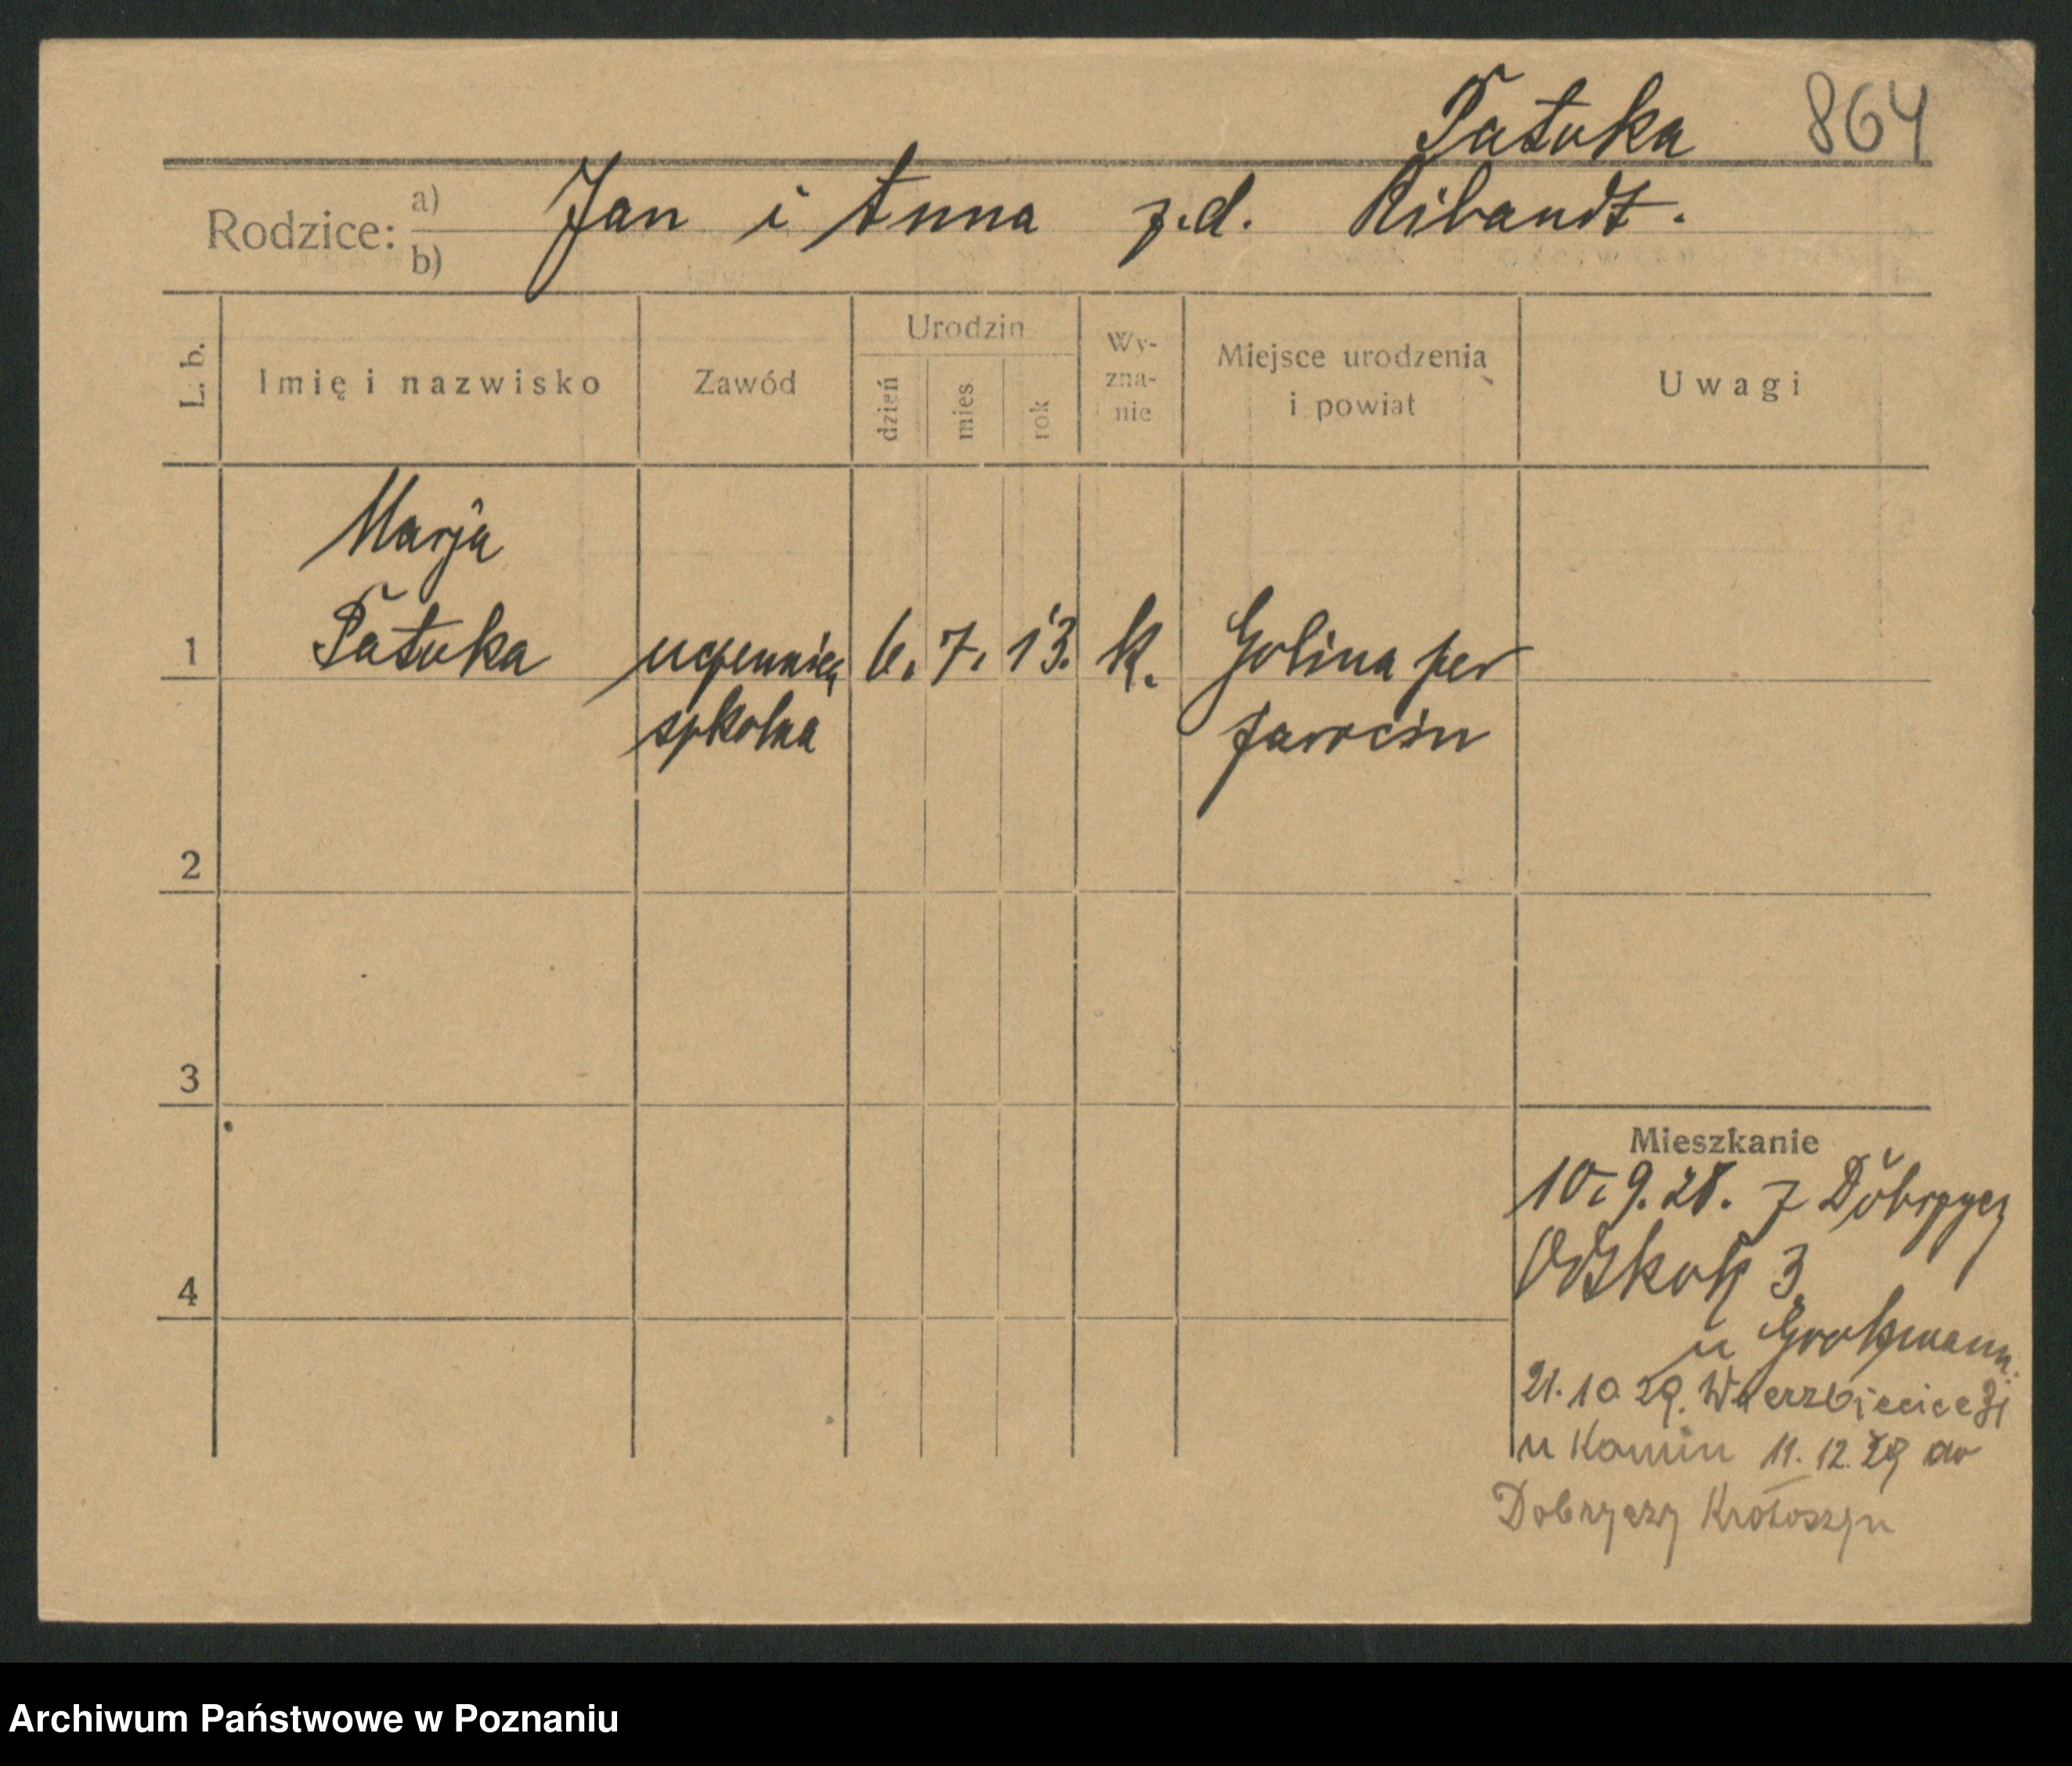 Tatuka 864
Rodzice: a) b) Jan i Anna z.d. Ribandt.
L. b. Imię i nazwisko Zawód Urodzin dzień mies rok Wy-zna-nie Miejsce urodzenia i powiat Uwagi
Marja
1 Tatuka uczennica 6. 7. 13. k. Golina per
szkolna Jarocin
2
3
Mieszkanie
10.9.28. z Dobrzycy
4 3
u
21.10.29. Wierzbiecice 31
u Kamin 11.12.29 do
Dobrzycy Krotoszyn
Archiwum Państwowe w Poznaniu